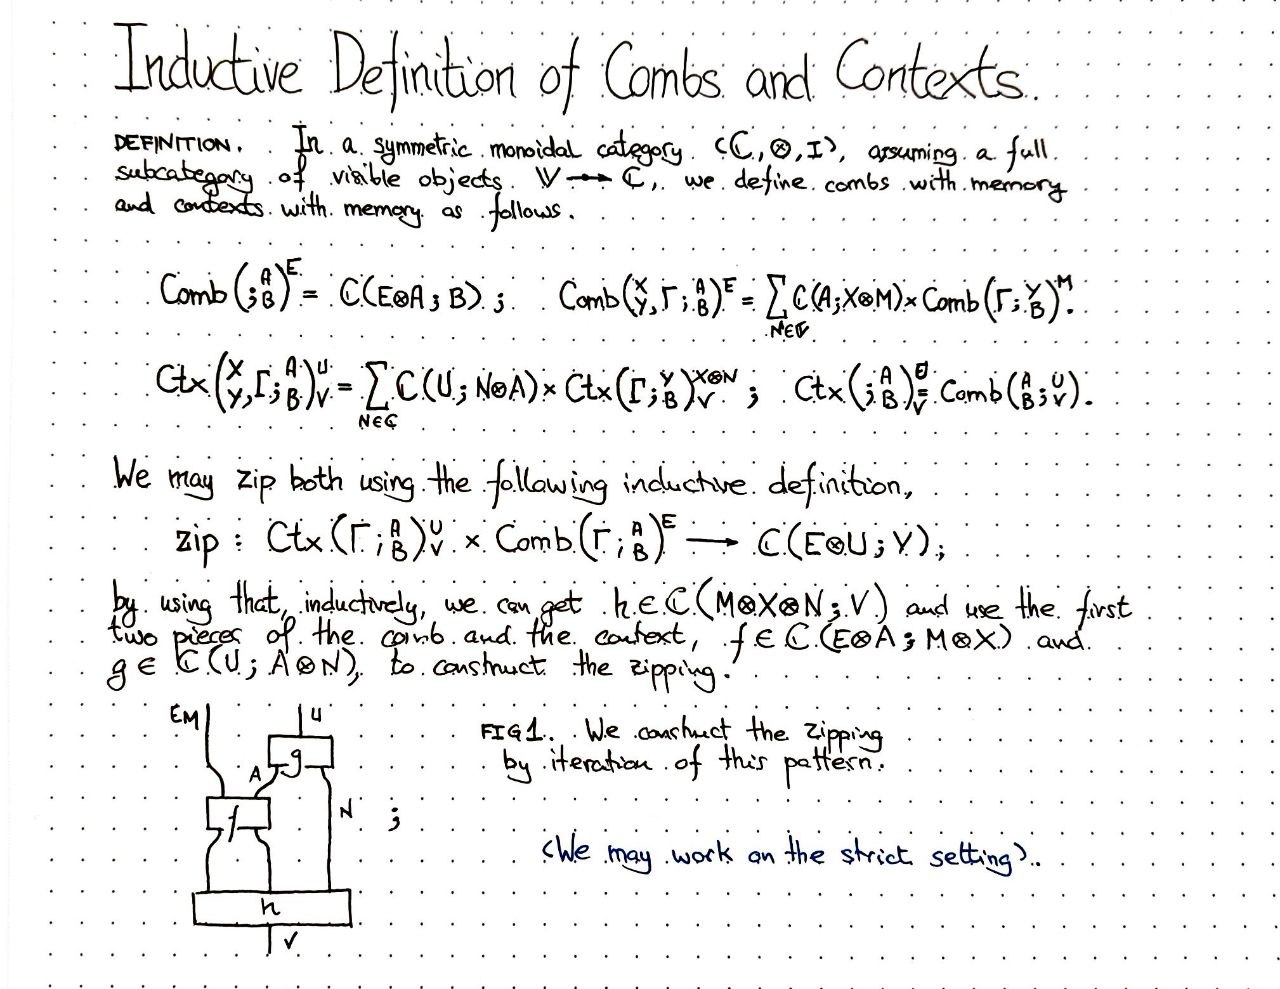 Inductive Definition of Combs and Contexts.
DEFINITION. In a symmetric monoidal category (ℂ,⊗,I), assuming a full
subcategory of visible objects 𝕍 → ℂ, we define combs with memory
and contexts with memory as follows.
Comb(;A/B)^E = ℂ(E⊗A;B); Comb(X/Y,Γ;A/B)^E = ∑_{N∈} ℂ(A;X⊗M)×Comb(Γ;Y/B)^M.
Ctx(X/Y,Γ;A/B)^U_V = ∑_{N∈ℂ} ℂ(U;N⊗A)×Ctx(Γ;Y/B)^{X⊗N}_V ; Ctx(;A/B)_V = Comb(A/B;U/V).
We may zip both using the following inductive definition,
zip : Ctx(Γ;A/B)^U_V × Comb(Γ;A/B)^E → ℂ(E⊗U;V);
by using that, inductively, we can get h∈ℂ(M⊗X⊗N;V) and use the first
two pieces of the comb and the context, f∈ℂ(E⊗A;M⊗X) and
g∈ℂ(U;A⊗N), to construct the zipping.
EM U
g
A
f N ;
h
V
FIG1. We construct the zipping
by iteration of this pattern.
(We may work on the strict setting).